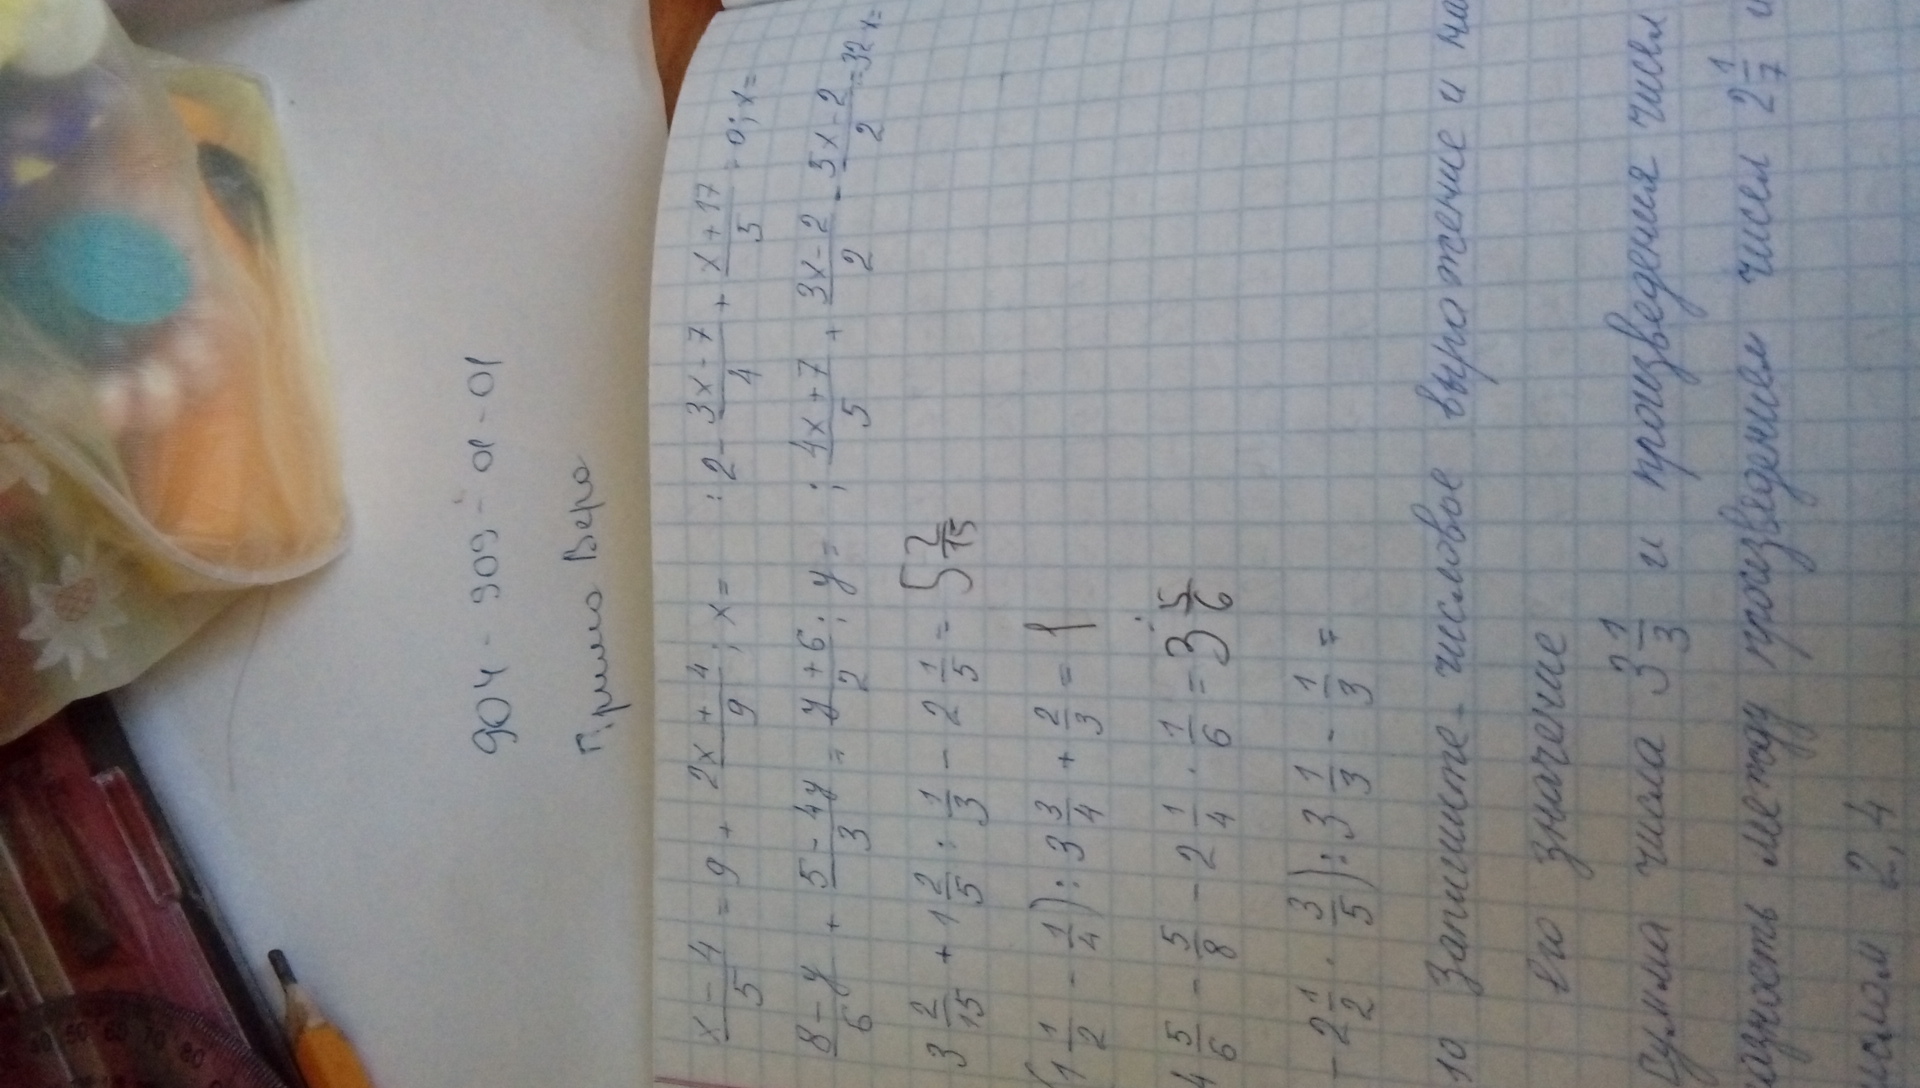 904-909-01-01
Прима Вера
x-4/5 = 9 + 2x+4/9; x= ; 2 - 3x-7/4 + x+17/5 = 0; x=
8-y/6 + 5-4y/3 = y+6/2; y= ; 4x+7/5 + 3x-2/2 - 5x-2/2 = 32 x=
3 2/15 + 1 2/5 : 1/3 - 2 1/5 = 5 2/15
(1 1/2 - 1/4) : 3 3/4 + 2/3 = 1
4 5/6 - 5/8 - 2 1/4 · 1/6 = 3 5/6
- 2 1/2 · 3/5) : 3 1/3 - 1/3 =
10 Запишите числовое выражение и на
его значение
Сумма числа 3 1/3 и произведения чисел
азность между произведением чисел 2 1/7 и
ислом 2,4